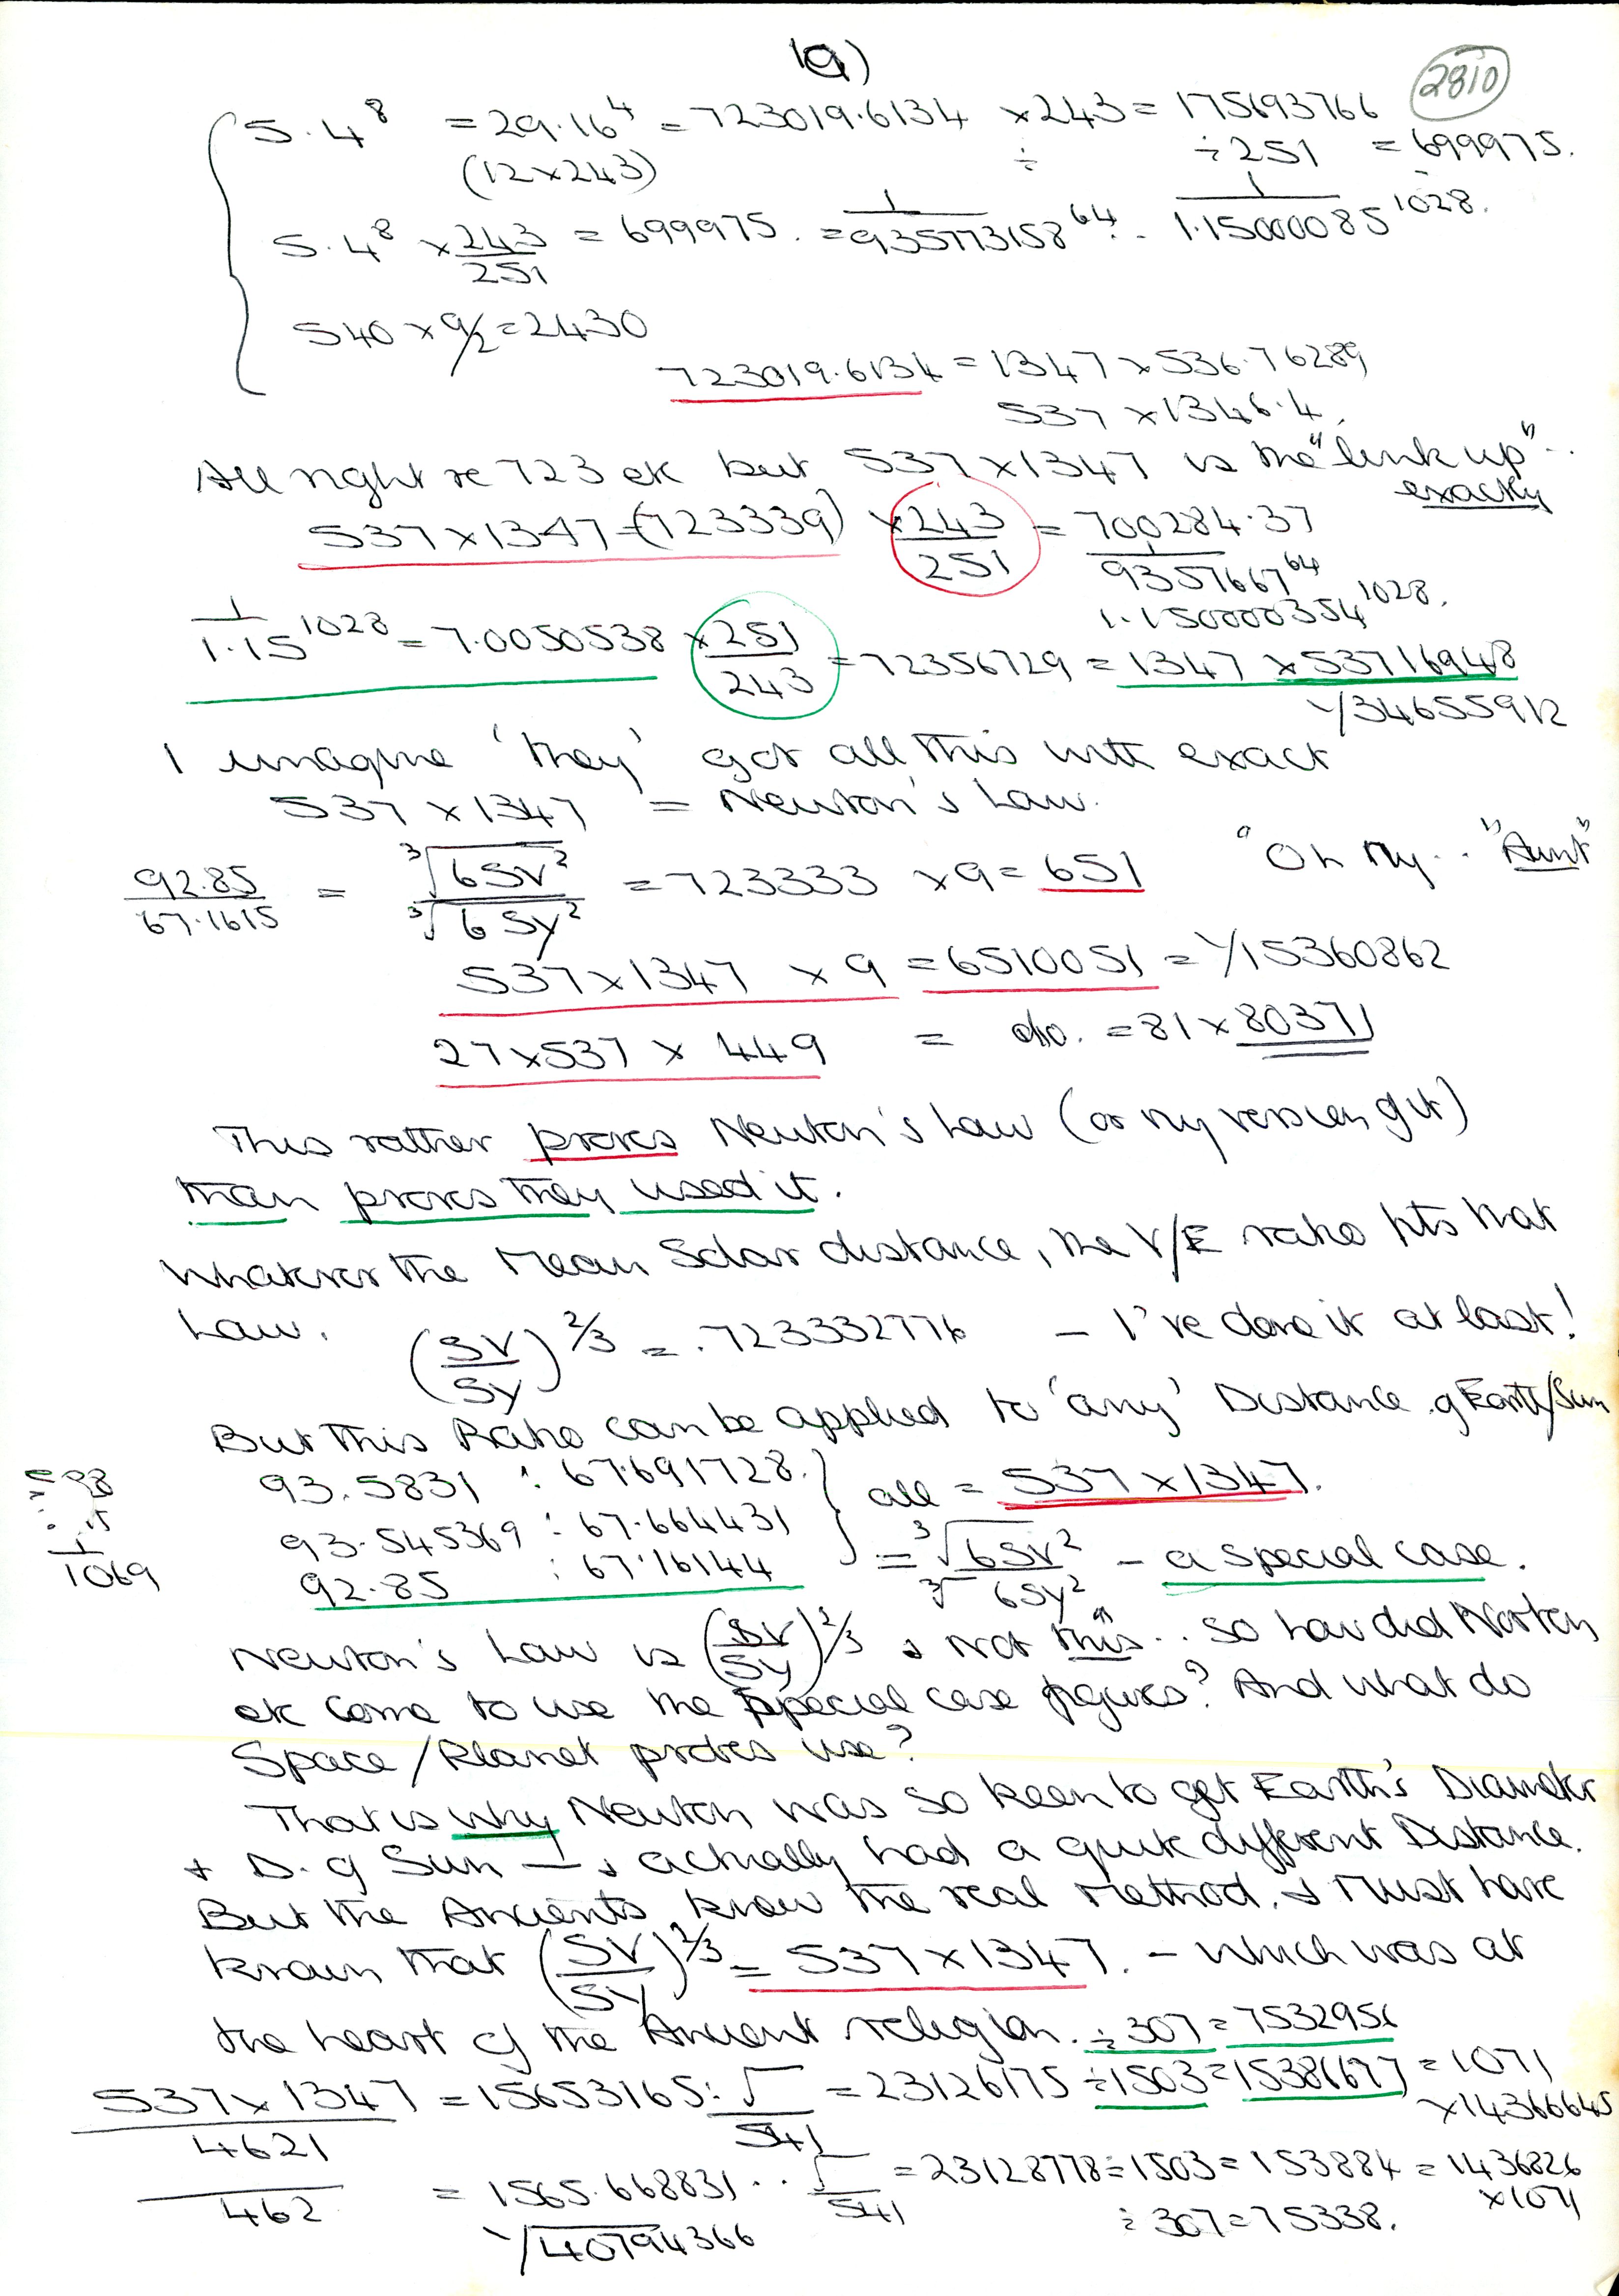 19)
2810
5.4⁸ = 29.16⁴ = 723019.6134 × 243 = 175693766
(12×243) ÷ ÷ 251 = 699975.
5.4⁸ × 243/251 = 699975. = 1/935773158⁶⁴. 1/1.15000085¹⁰²⁸.
540 × 9/2 = 2430
723019.6134 = 1347 × 536.76289
537 × 1346.4.
All right re 723 etc but 537 × 1347 is the "link up"..
exactly
537 × 1347 = (723339) × 243/251 = 700284.37
1/9357667⁶⁴
1.150000354¹⁰²⁸.
1/1.15¹⁰²⁸ = 7.0050538 × 251/243 = 72356729 = 1347 × 53716948
1/34655912
I imagine 'they' got all this with exact
537 × 1347 = Newton's Law.
92.85/67.1615 = ∛6SV²/∛6SY² = 723333 × 9 = 651 "Oh My.. "Aunt"
537 × 1347 × 9 = 6510051 = 1/15360862
27 × 537 × 449 = do. = 81 × 80371
This rather proves Newton's Law (or my version of it)
than proves they used it.
Whatever the Mean Solar distance, the V/E ratio fits that
Law. (SV/SY)^2/3 = .723332776 – I've done it at last!
But this Ratio can be applied to 'any' Distance of Earth/Sun
93.5831 : 67.691728. } all = 537 × 1347.
93.545369 : 67.664431
1069
92.85 : 67.16144 = ∛6SV²/∛6SY² – a special case.
Newton's Law is (SV/SY)^2/3 & Not "this".. so how did Norton
etc come to use the special case figures? And what do
Space/Planet probes use?
That is why Newton was so keen to get Earth's Diameter
+ D. of Sun – & actually had a quite different Distance.
But the Ancients knew the real Method, & Must have
known that (SV/SY)^2/3 = 537 × 1347. – which was at
the heart of the Ancient religion. ÷ 307 = 7532956
537 × 1347/4621 = 15653165: √/541 = 23126175 ÷ 1503 = 15386677 = 1071
× 14366645
/462 = 1565.668831.. √/541 = 23128778 ÷ 1503 = 153884 = 1436826
× 1071
1/40794366 ÷ 307 = 75338.